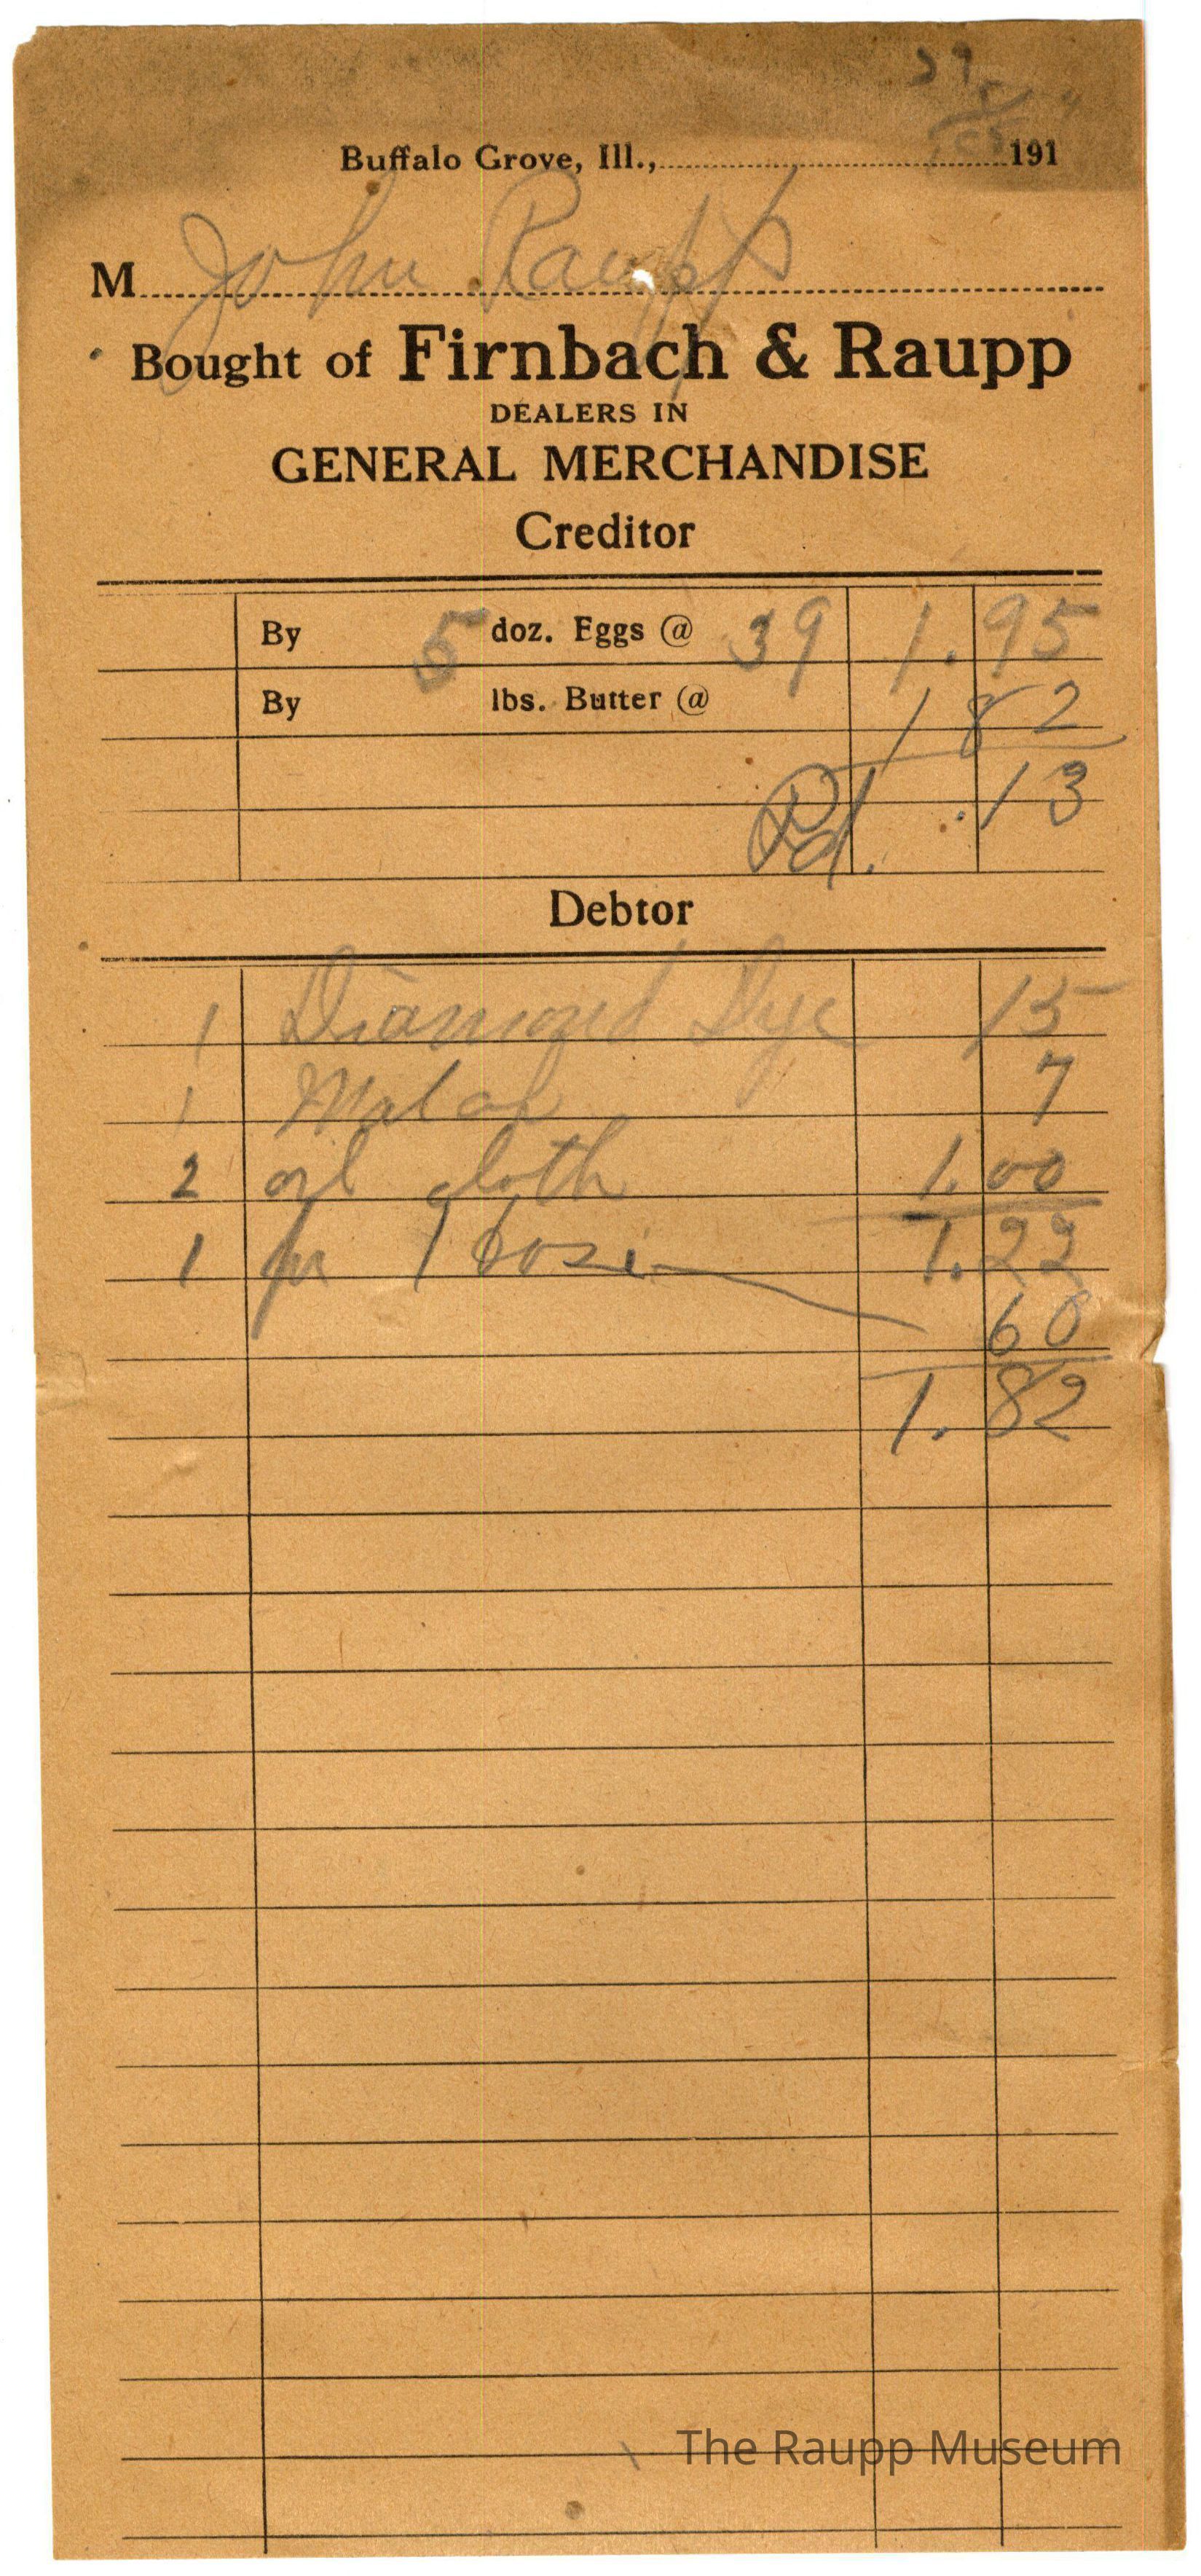 29
Buffalo Grove, Ill., 191
M John Raupp
Bought of Firnbach & Raupp
DEALERS IN
GENERAL MERCHANDISE
Creditor
By 5 doz. Eggs @ 39 1.95
By lbs. Butter @ 1 82
Pd. .13
Debtor
1 Diamond Dye 15
1 7
2 oil cloth 1.00
1 pr hose 1.22
60
1.82
The Raupp Museum